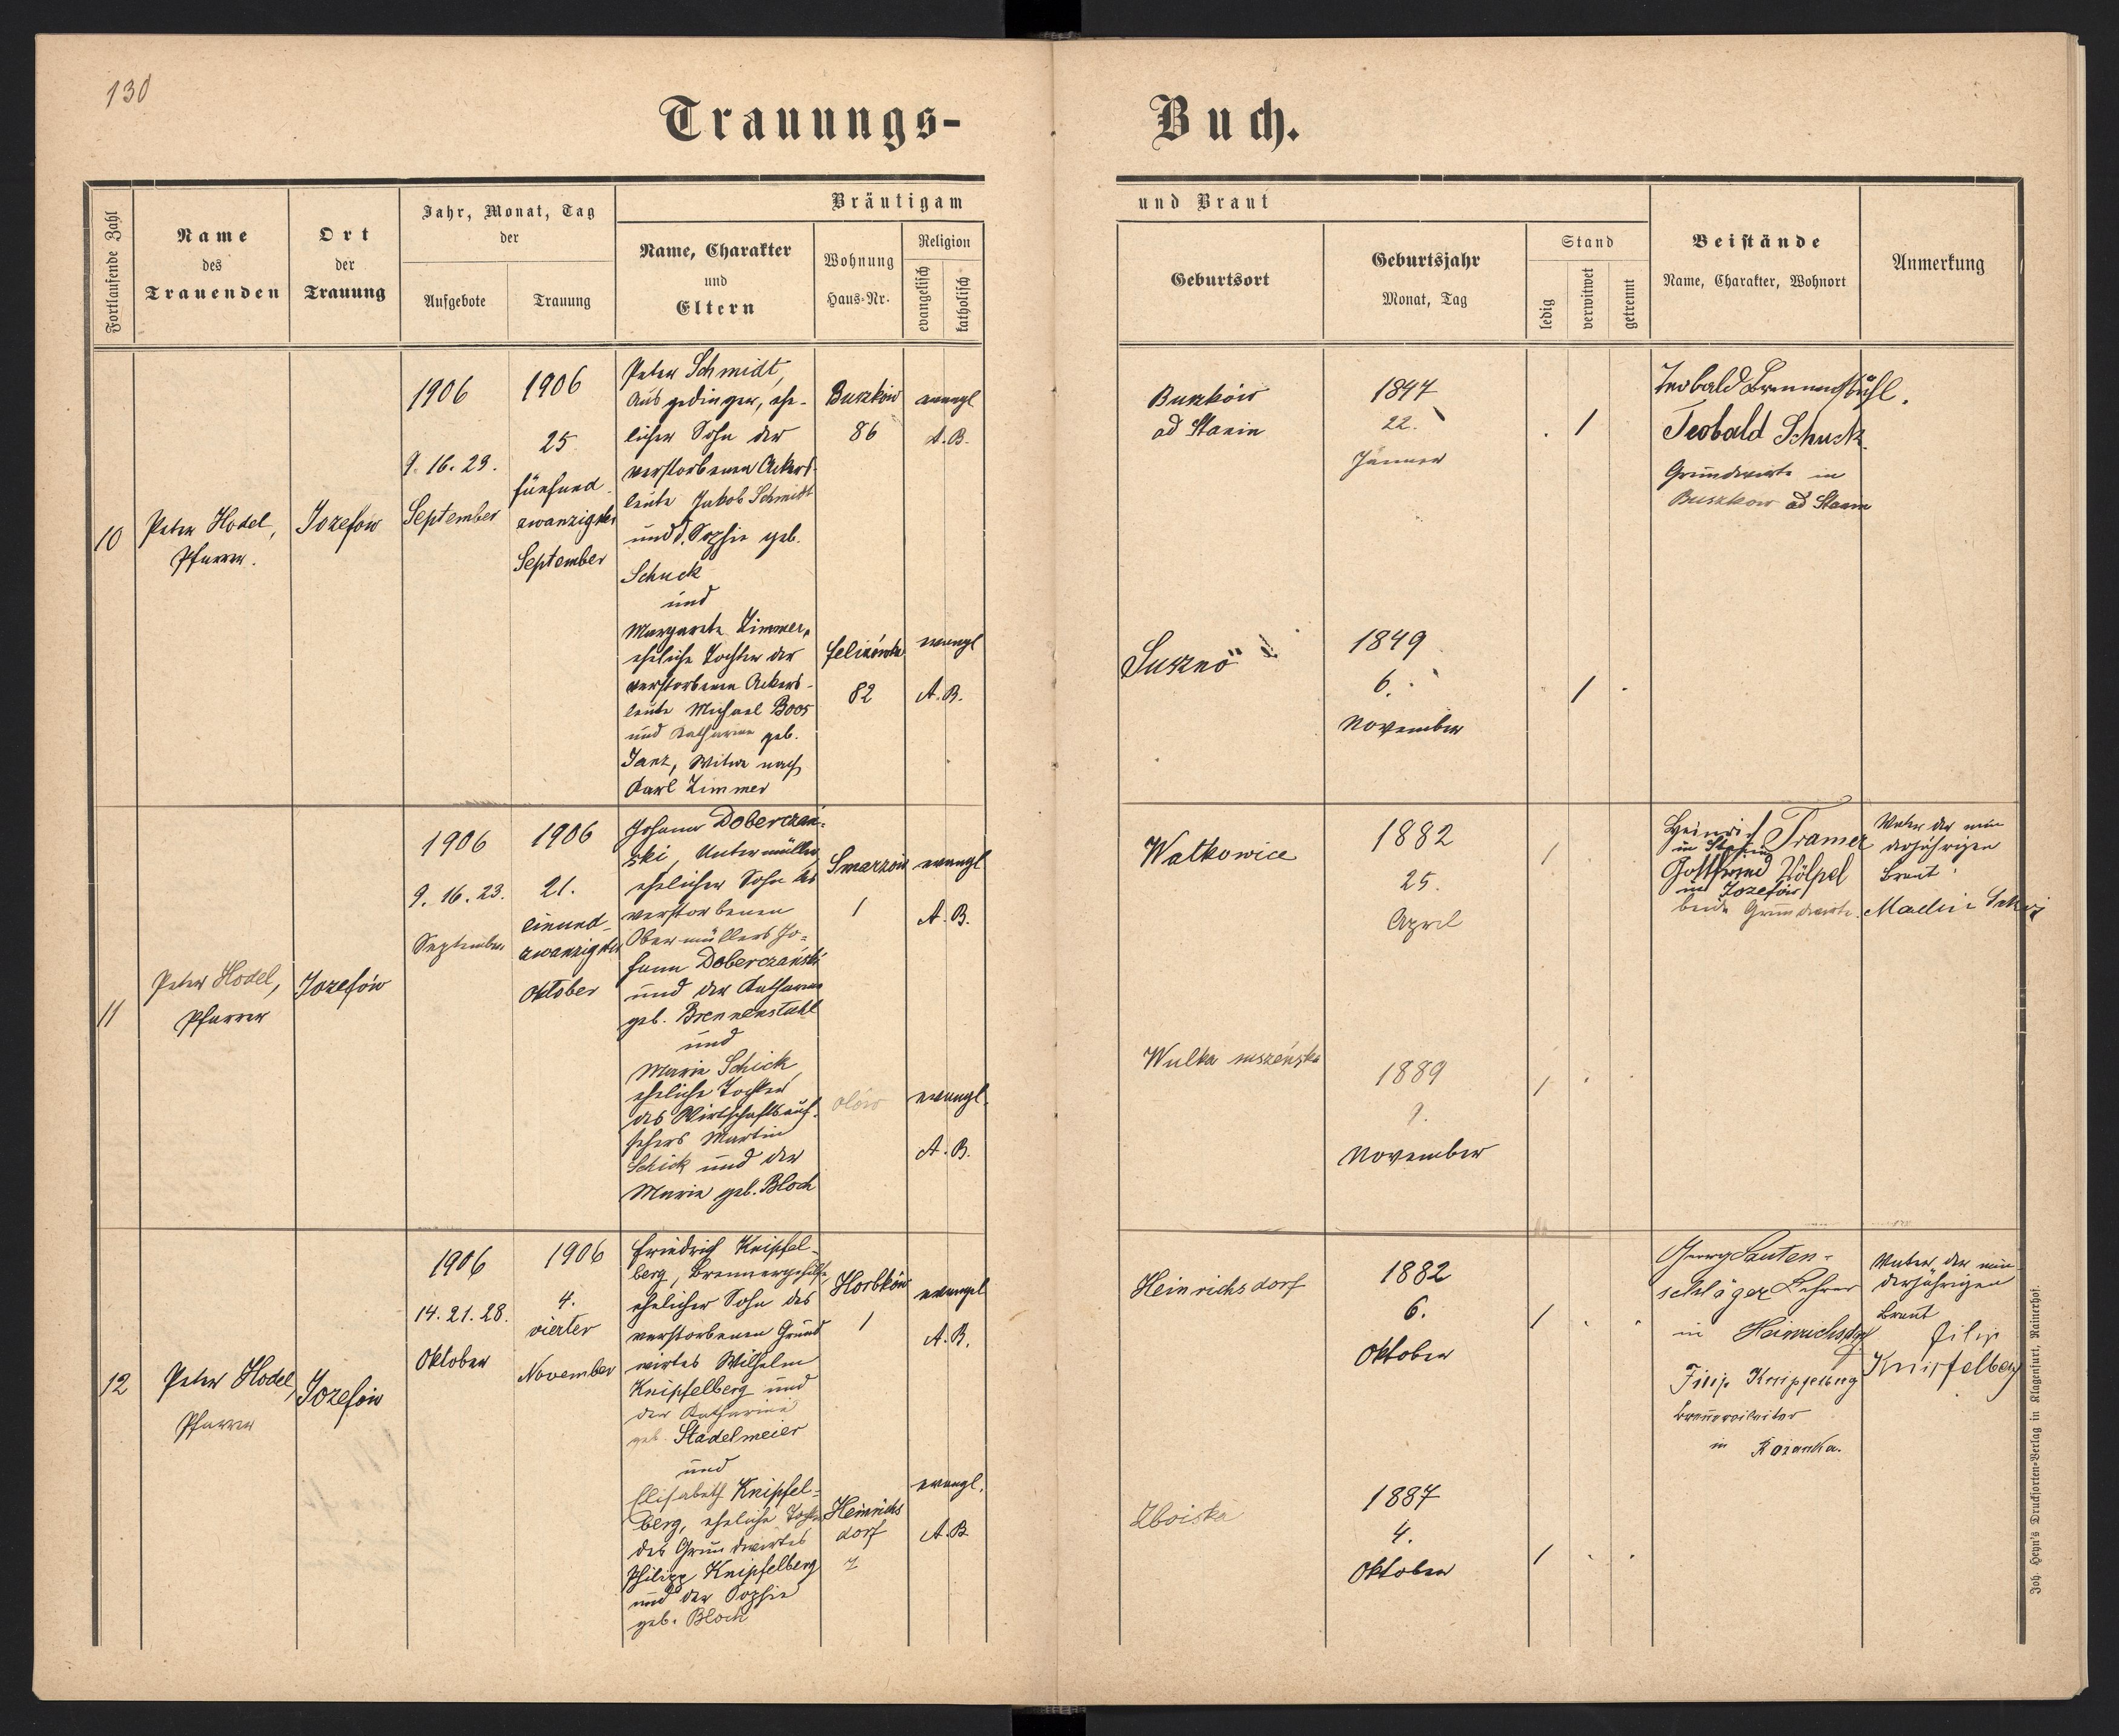 130
Trauungs-
Buch.
Fortlaufende Zahl
Name
des
Trauenden
Ort
der
Trauung
Jahr, Monat, Tag
der
Aufgebote
Trauung
Bräutigam
Name, Charakter
und
Eltern
Wohnung
Haus-Nr.
Religion
evangelisch
katholisch
und Braut
Geburtsort
Geburtsjahr
Monat, Tag
Stand
ledig
verwitwet
getrennt
Beistände
Name, Charakter, Wohnort
Anmerkung
10
Peter Hodel,
Pfarrer.
Jozefow
1906
9. 16. 23.
September
1906
25
fünfund-
zwanzigster
September
Peter Schmidt,
Ausgedinger, ehe-
licher Sohn der
verstorbenen Ackers-
leute Jakob Schmidt
und d. Sophie geb.
Schuck
und
Margarete Zimmer,
eheliche Tochter der
verstorbenen Ackers-
leute Michael Boos
und Katharine geb.
Janz, Witwe nach
Karl Zimmer
Buszków
86
evangl
A.B.
Felizówka
82
evangl
A.B.
Buszków
ad Stanin
1847
22.
Jänner
1
Suszno
1849
6.
November
1
Teobald
Teobald Schuck
Grundwirte in
Buszkow ad Stanin
11
Peter Hodel,
Pfarrer
Jozefów
1906
9. 16. 23.
September
1906
21.
einund-
zwanzigster
Oktober
Johann Doberczań-
ski, Untermüller
ehelicher Sohn des
verstorbenen
Obermüllers Jo-
hann Doberczański
und der Katharine
geb. Brennenstuhl
und
Marie Schick
eheliche Tochter
des Wirtschaftsauf-
sehers Martin
Schick und der
Marie geb. Bloch
Smarzów
1
evangl
A.B.
olów
evangl.
A.B.
Watkowice
1882
25.
April
1
Wulka
1889
9.
November
1
Heinrich Tramer
in
Gottfried Völpel
in Jozefów
beide Grundwirte.
Vater der min
derjährigen
Braut:
12
Peter Hodel,
Pfarrer
Jozefów
1906
14. 21. 28.
Oktober
1906
4.
vierter
November
Friedrich Knipfel-
berg, Brennergehilfe,
ehelicher Sohn des
verstorbenen Grund
wirtes Wilhelm
Knipfelberg und
der Katharine
geb. Stadelmeier
und
Elisabeth Knipfel-
berg, eheliche Tochter
des Grundwirtes
Philipp Knipfelberg
und der Sophie
geb. Bloch
Horbków
1
evangel
A.B.
Heinrichs
dorf
evangl.
A.B.
Heinrichsdorf
1882
6.
Oktober
1
Zboiska
1887
4.
Oktober
1
Georg Lauten-
schläger Lehrer
in Heinrichsdorf
Filip Knipfelberg
in Rozanka.
Vater der min
derjährigen
Braut
Filip
Knipfelberg
Joh. Heyn's Drucksorten-Verlag in Klagenfurt, Rainerhof.